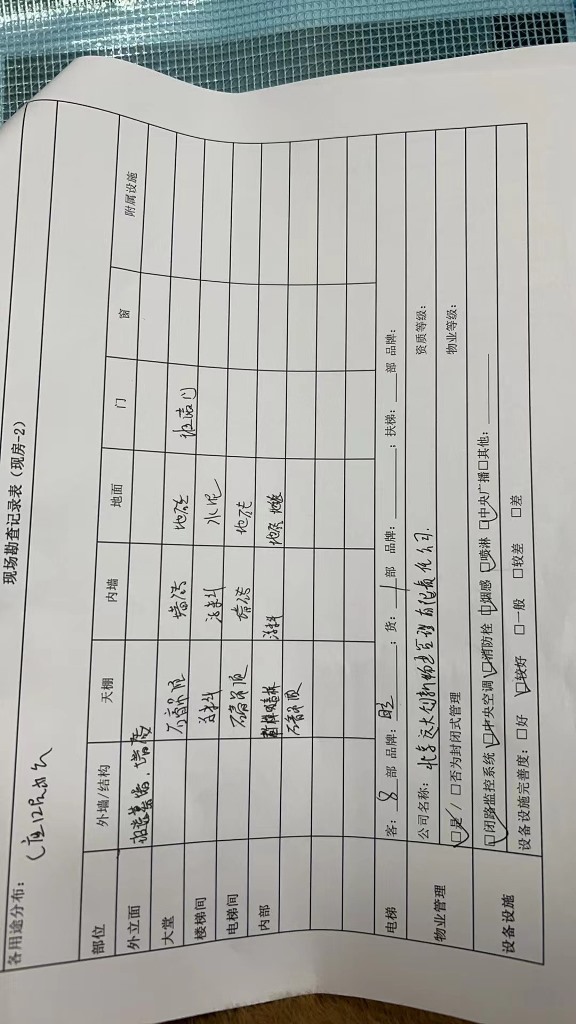 现场勘查记录表（现房-2）
各用途分布：
部位 外墙/结构 天棚 内墙 地面 门 窗 附属设施
外立面
大堂 石膏吊顶 墙砖 地砖
楼梯间 涂料 涂料 水泥
电梯间 石膏吊顶 墙砖 地砖
内部 涂料 地砖
石膏吊顶
电梯 客：8 部 品牌： ；货：1 部 品牌： ；扶梯： 部 品牌：
物业管理 公司名称：北京 物业管理有限责任公司 资质等级：
☑是/□否为封闭式管理 物业等级：
设备设施 ☑闭路监控系统 ☑中央空调 ☑消防栓 ☑烟感 ☑喷淋 ☑中央广播□其他：
设备设施完善度：□好 ☑较好 □一般 □较差 □差